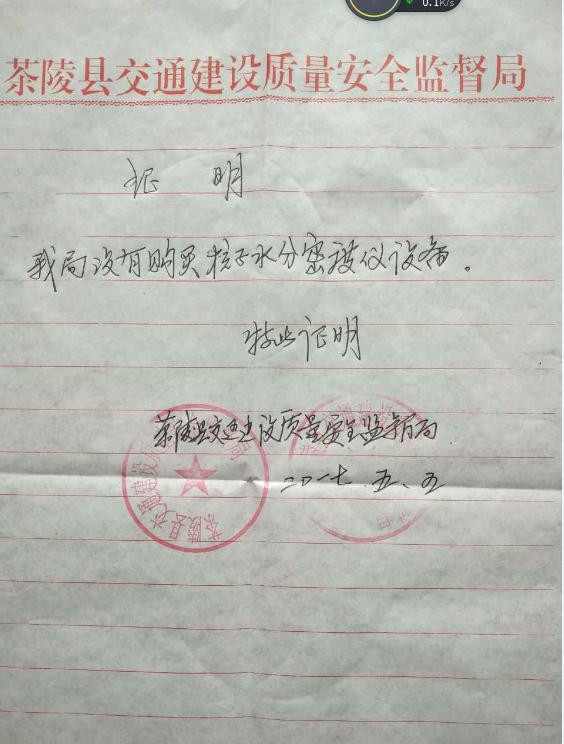 0.1K/s
茶陵县交通建设质量安全监督局
证 明
我局没有购买核子水分密度仪设备。
特此证明
茶陵县交通建设质量安全监督局
二〇一七.五.五